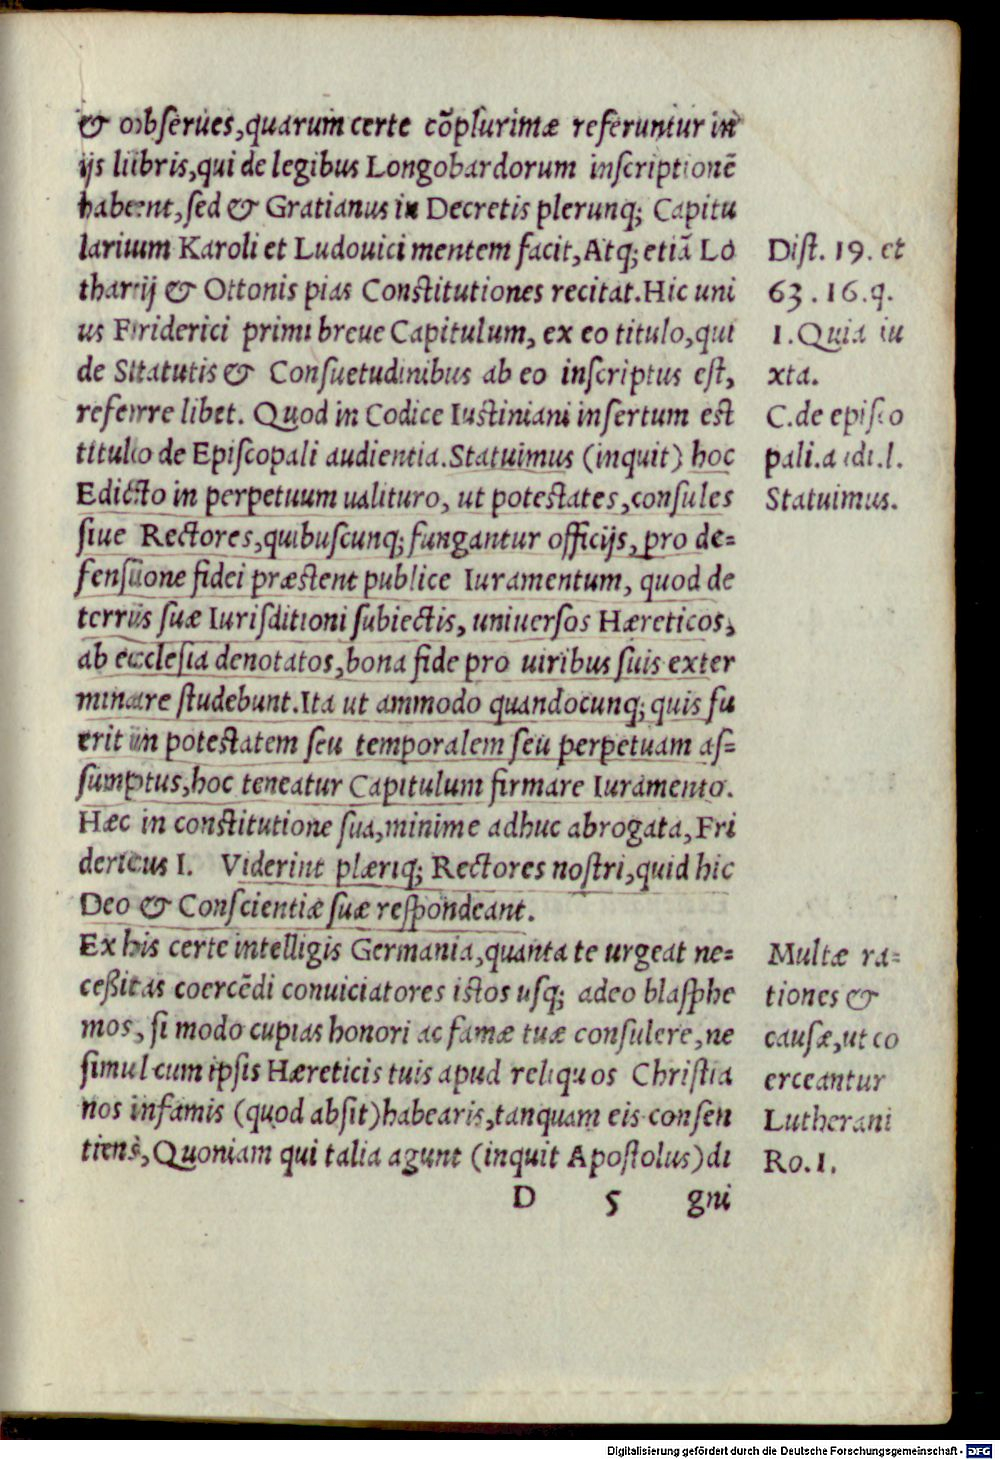 & obserues, quarum certe cõplurimæ referuntur in
ijs libris, qui de legibus Longobardorum inscriptionẽ
habent, sed & Gratianus in Decretis plerunq; Capitu
larium Karoli et Ludouici mentem facit, Atq; etiã Lo
tharij & Ottonis pias Constitutiones recitat. Hic uni
us Friderici primi breue Capitulum, ex eo titulo, qui
de Statutis & Consuetudinibus ab eo inscriptus est,
referre libet. Quod in Codice Iustiniani insertum est
titulo de Episcopali audientia. Statuimus (inquit) hoc
Edicto in perpetuum ualituro, ut potestates, consules
siue Rectores, quibuscunq; fungantur officijs, pro de=
fensione fidei præstent publice Iuramentum, quod de
terris suæ Iurisditioni subiectis, uniuersos Hæreticos,
ab ecclesia denotatos, bona fide pro uiribus suis exter
minare studebunt. Ita ut ammodo quandocunq; quis fu
erit in potestatem seu temporalem seu perpetuam as=
sumptus, hoc teneatur Capitulum firmare Iuramento.
Hæc in constitutione sua, minime adhuc abrogata, Fri
dericus I. Viderint plæriq; Rectores nostri, quid hic
Deo & Conscientiæ suæ respondeant.
Ex his certe intelligis Germania, quanta te urgeat ne=
ceßitas coercẽdi conuiciatores istos usq; adeo blasphe
mos, si modo cupias honori ac famæ tuæ consulere, ne
simul cum ipsis Hæreticis tuis apud reliquos Christia
nos infamis (quod absit) habearis, tanquam eis consen
tiens, Quoniam qui talia agunt (inquit Apostolus) di
D 5 gni
Dist. 19. et
63. 16. q.
1. Quia iu
xta.
C. de episco
pali. audi. l.
Statuimus.
Multæ ra=
tiones &
causæ, ut co
erceantur
Lutherani
Ro. 1.
Digitalisierung gefördert durch die Deutsche Forschungsgemeinschaft - DFG